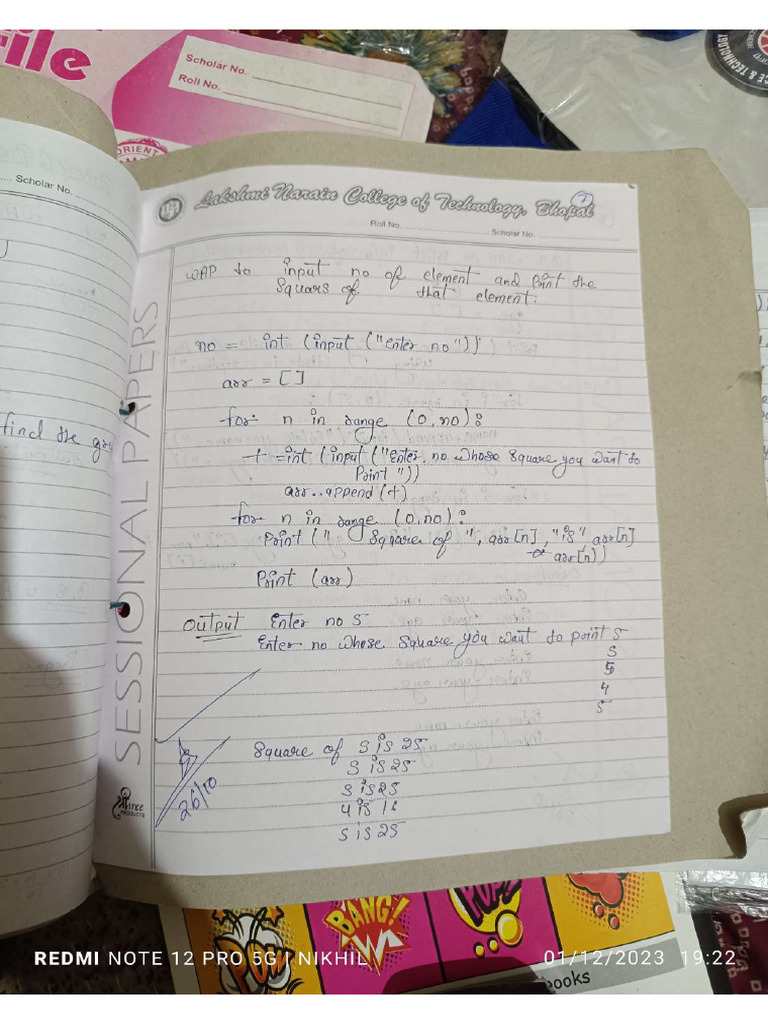 ile
Scholar No.
Roll No.
ORIENT
& TECHNOLOGY
Scholar No.
Lakshmi Narain College of Technology, Bhopal
Roll No.
Scholar No.
WAP to input no of element and print the
Squars of that element.
no = int (input ("Enter no"))
arr = []
for n in range (0, no):
t = int (input ("Enter no whose square you want to
Print"))
arr..append (t)
for n in range (0, no):
Print (" Square of ", arr[n] , "is" arr[n]
* arr[n))
Print (arr)
Output Enter no 5
Enter no whose square you want to print 5
5
5
4
5
Square of 5 is 25
5 is 25
5 is 25
4 is 16
5 is 25
26/10
SESSIONAL PAPERS
Shree
PRODUCTS
find the
POW
BANG!
POP!
ooks
REDMI NOTE 12 PRO 5G | NIKHIL
01/12/2023 19:22